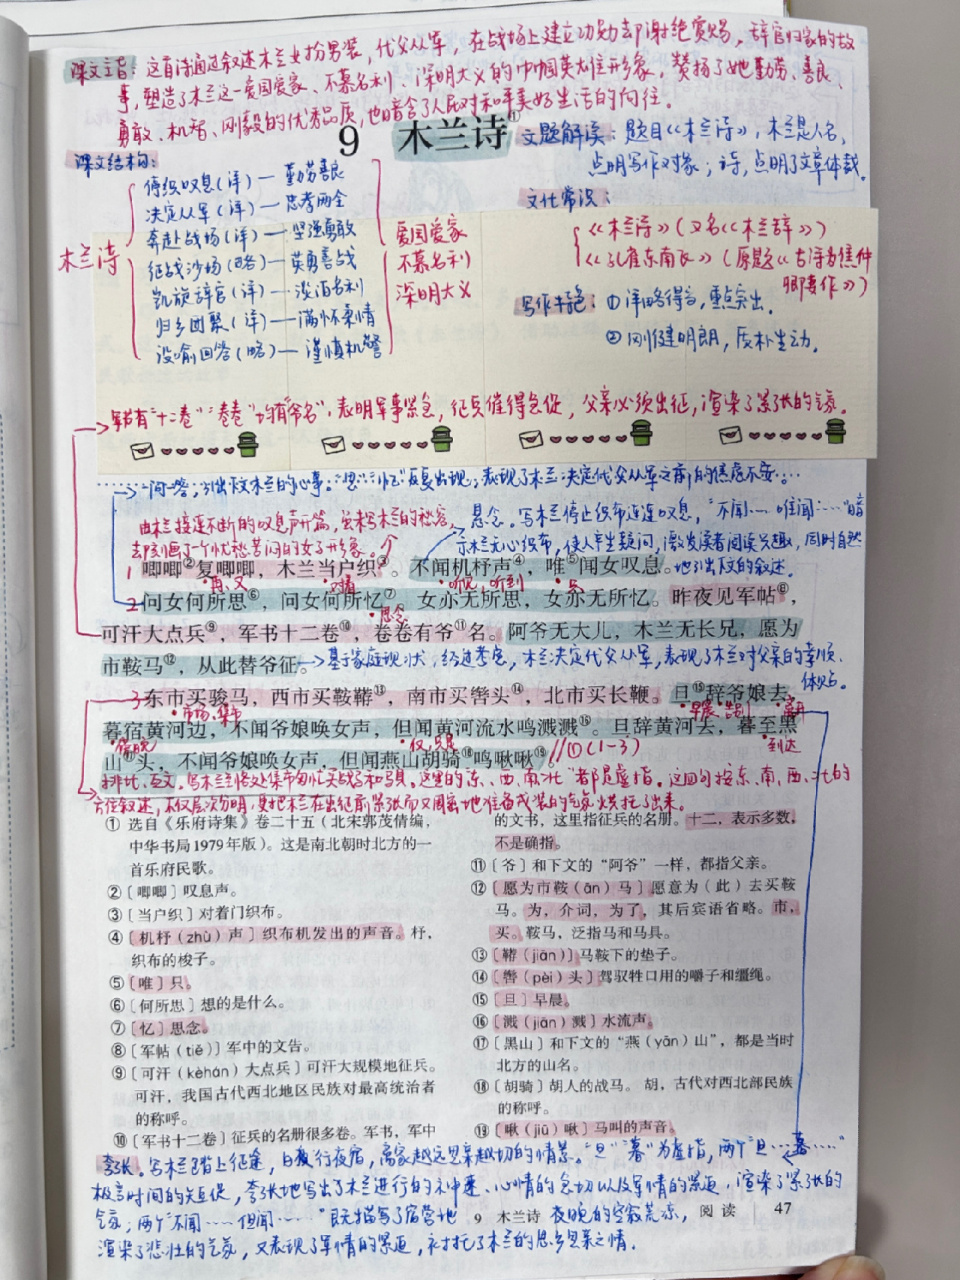 课文主旨：这首诗通过叙述木兰女扮男装，代父从军，在战场上建立功勋却谢绝赏赐，辞官归家的故
事，塑造了木兰这一爱国爱家、不慕名利、深明大义的巾帼英雄形象，赞扬了她勤劳、善良、
勇敢、机智、刚毅的优秀品质，也暗含了人民对和平美好生活的向往。
9 木兰诗①
文题解读：题目《木兰诗》，木兰是人名，
点明写作对象；诗，点明了文章体裁。
课文结构：
木兰诗
停织叹息（详）— 勤劳善良
决定从军（详）— 忠孝两全
奔赴战场（详）— 坚强勇敢
征战沙场（略）— 英勇善战
凯旋辞官（详）— 淡泊名利
归乡团聚（详）— 满怀柔情
设喻回答（略）— 谨慎机警
爱国爱家
不慕名利
深明大义
文化常识：
《木兰诗》（又名《木兰辞》）
《孔雀东南飞》（原题《古诗为焦仲
卿妻作》）
写作特色：①详略得当，重点突出。
②刚健明朗，质朴生动。
军书有“十二卷”“卷卷”均有“爷名”，表明军事紧急，征兵催得急促，父亲必须出征，渲染了紧张的气氛。
一问一答，引出下文木兰的心事。“思”“忆”反复出现，表现了木兰决定代父从军之前的焦虑不安。
由木兰接连不断的叹息声开篇，虽未写木兰的愁容，
却刻画了一个忧愁苦闷的女子形象。
悬念。写木兰停止织布连连叹息，“不闻……唯闻……”暗
示木兰无心织布，使人产生疑问，激发读者阅读兴趣，同时自然
地引出下文的叙述。
1 唧唧②复唧唧，木兰当户织③。不闻机杼声④，唯⑤闻女叹息。
再、又 对着 听见，听到 只
2 问女何所思⑥，问女何所忆⑦。女亦无所思，女亦无所忆。昨夜见军帖⑧，
思念
可汗大点兵⑨，军书十二卷⑩，卷卷有爷⑪名。阿爷无大儿，木兰无长兄，愿为
市鞍马⑫，从此替爷征。
基于家庭现状，经过考虑，木兰决定代父从军，表现了木兰对父亲的孝顺、
体贴。
3 东市买骏马，西市买鞍鞯⑬，南市买辔头⑭，北市买长鞭。旦⑮辞爷娘去，
市场、集市 早晨 告别 离开
暮宿黄河边，不闻爷娘唤女声，但闻黄河流水鸣溅溅⑯。旦辞黄河去，暮至黑
傍晚 仅，只是 到达
山⑰头，不闻爷娘唤女声，但闻燕山胡骑⑱鸣啾啾⑲。//①（1-3）
排比、互文。写木兰到各处集市匆忙买战马和马具。这里的“东、西、南、北”都是虚指。这四句按东、南、西、北的
方位叙述，不仅层次分明，更把木兰在出征前紧张而又周密地准备戎装的气氛烘托了出来。
① 选自《乐府诗集》卷二十五（北宋郭茂倩编，
中华书局1979年版）。这是南北朝时北方的一
首乐府民歌。
②〔唧唧〕叹息声。
③〔当户织〕对着门织布。
④〔机杼（zhù）声〕织布机发出的声音。杼，
织布的梭子。
⑤〔唯〕只。
⑥〔何所思〕想的是什么。
⑦〔忆〕思念。
⑧〔军帖（tiě）〕军中的文告。
⑨〔可汗（kèhán）大点兵〕可汗大规模地征兵。
可汗，我国古代西北地区民族对最高统治者
的称呼。
⑩〔军书十二卷〕征兵的名册很多卷。军书，军中
的文书，这里指征兵的名册。十二，表示多数，
不是确指。
⑪〔爷〕和下文的“阿爷”一样，都指父亲。
⑫〔愿为市鞍（ān）马〕愿意为（此）去买鞍
马。为，介词，为了，其后宾语省略。市，
买。鞍马，泛指马和马具。
⑬〔鞯（jiān）〕马鞍下的垫子。
⑭〔辔（pèi）头〕驾驭牲口用的嚼子和缰绳。
⑮〔旦〕早晨。
⑯〔溅（jiān）溅〕水流声。
⑰〔黑山〕和下文的“燕（yān）山”，都是当时
北方的山名。
⑱〔胡骑〕胡人的战马。胡，古代对西北部民族
的称呼。
⑲〔啾（jiū）啾〕马叫的声音。
夸张。写木兰踏上征途，日夜行夜宿，离家越远思亲越切的情景。“旦”“暮”为虚指，两个“旦……暮……”
极言时间的短促，夸张地写出了木兰进行的神速、心情的急切以及军情的紧迫，渲染了紧张的
气氛；两个“不闻……但闻……”既描写了宿营地夜晚的空寂荒凉，
9 木兰诗 阅读 | 47
渲染了悲壮的气氛，又表现了军情的紧迫，衬托了木兰的思乡思亲之情。